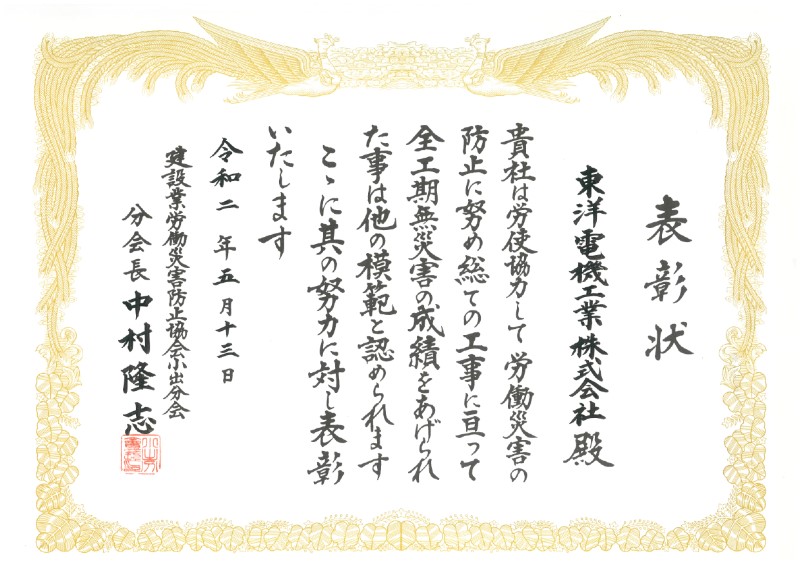 表彰状
東洋電機工業株式会社殿
貴社は労使協力して労働災害の
防止に努め総ての工事に亘って
全工期無災害の成績をあげられ
た事は他の模範と認められます
こゝに其の努力に対し表彰
いたします
令和二年五月十三日
建設業労働災害防止協会小出分会
分会長中村隆志